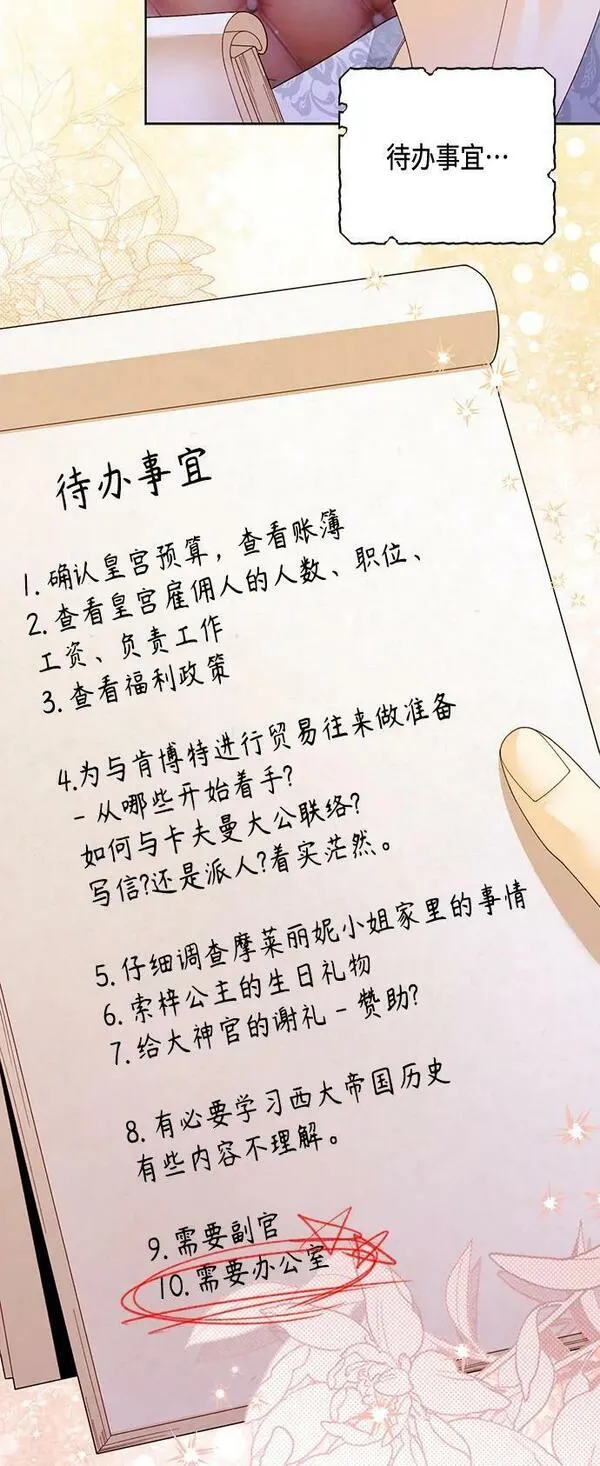 待办事宜…
待办事宜
1. 确认皇宫预算，查看账簿
2. 查看皇宫雇佣人的人数、职位、
工资、负责工作
3. 查看福利政策
4.为与肯博特进行贸易往来做准备
- 从哪些开始着手?
如何与卡夫曼大公联络?
写信?还是派人?着实茫然。
5. 仔细调查摩莱丽妮小姐家里的事情
6. 索梓公主的生日礼物
7. 给大神官的谢礼 - 赞助?
8. 有必要学习西大帝国历史
有些内容不理解。
9. 需要副官
10. 需要办公室